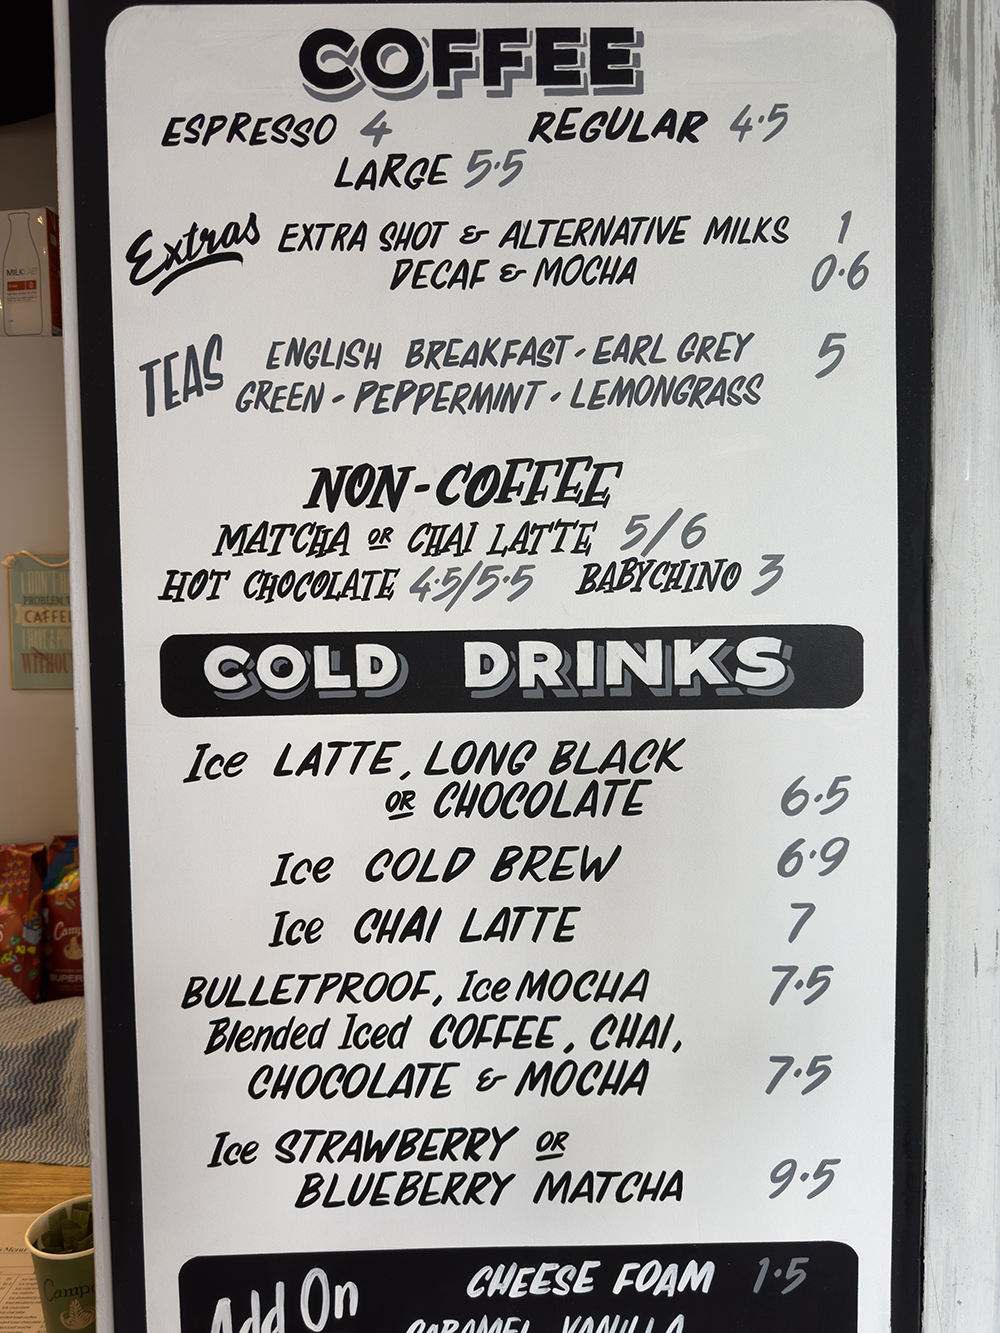 COFFEE
ESPRESSO 4 REGULAR 4.5
LARGE 5.5
Extras EXTRA SHOT & ALTERNATIVE MILKS 1
DECAF & MOCHA 0.6
TEAS ENGLISH BREAKFAST - EARL GREY 5
GREEN - PEPPERMINT - LEMONGRASS
NON-COFFEE
MATCHA OR CHAI LATTE 5/6
HOT CHOCOLATE 4.5/5.5 BABYCHINO 3
COLD DRINKS
Ice LATTE, LONG BLACK
OR CHOCOLATE 6.5
Ice COLD BREW 6.9
Ice CHAI LATTE 7
BULLETPROOF, Ice MOCHA 7.5
Blended Iced COFFEE, CHAI,
CHOCOLATE & MOCHA 7.5
Ice STRAWBERRY OR
BLUEBERRY MATCHA 9.5
Add On CHEESE FOAM 1.5
CARAMEL VANILLA
MILKLAB